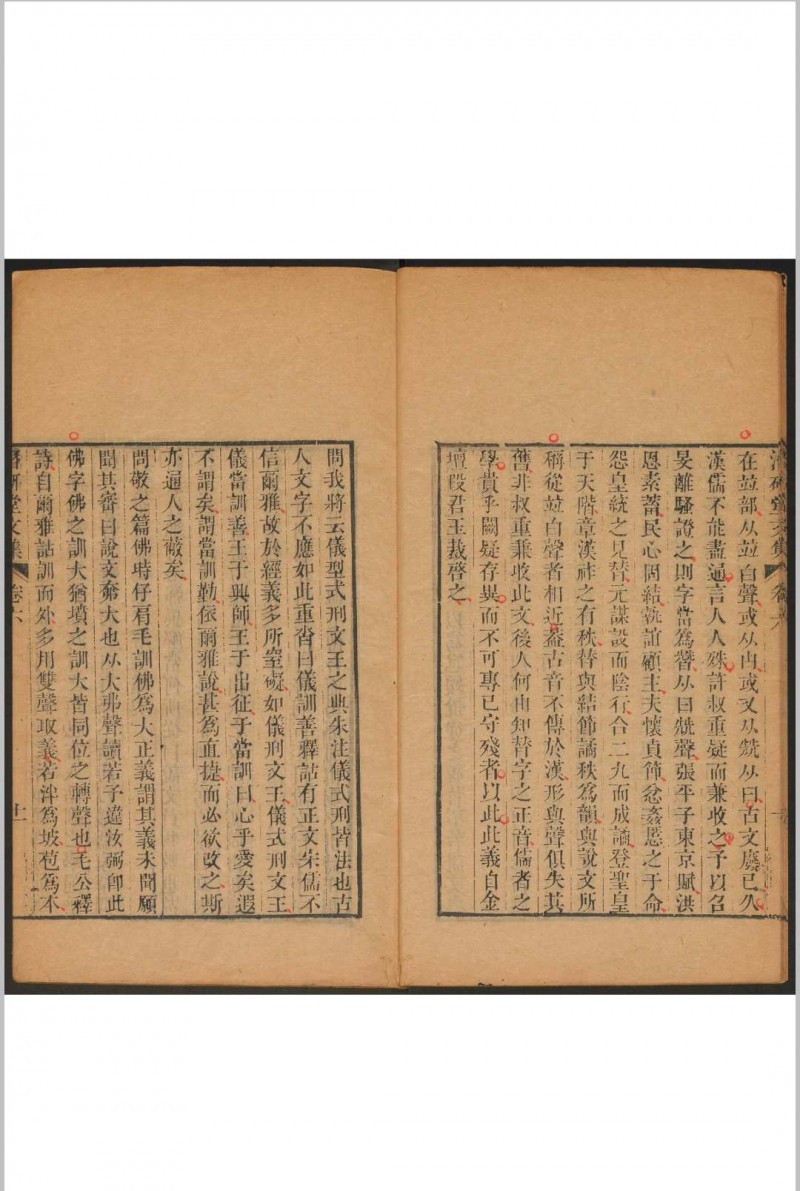 在竝部从竝白聲或从冉或又从兟从曰古文廢已久
漢儒不能盡通言人人殊許叔重疑而兼收之予以召
旻離騷證之則字當爲朁从曰兟聲張平子東京賦洪
恩素蓄民心固結執誼顧主夫懷貞節忿姦慝之干命
怨皇統之見替元謀設而陰行合二九而成譎登聖皇
于天階章漢祚之有秩替與結節譎秩爲韻與說文所
稱從竝白聲者相近蓋古音不傳於漢形與聲俱失其
舊非叔重兼收此文後人何由知替字之正音儒者之
學貴乎闕疑存異而不可專已守殘者以此此義自金
壇段君玉裁啓之
問我將云儀型式刑文王之典朱注儀式刑皆法也古
人文字不應如此重沓曰儀訓善釋詁有正文朱儒不
信爾雅故於經義多所窒礙如儀刑文王儀式刑文王
儀當訓善王于興師王于出征于當訓曰心乎愛矣遐
不謂矣謂當訓勤依爾雅說甚爲直捷而必欲改之斯
亦通人之蔽矣
問敬之篇佛時仔肩毛訓佛爲大正義謂其義未聞願
聞其審曰說文奔大也从大弗聲讀若予違汝弼卽此
佛字佛之訓大猶墳之訓大皆同位之轉聲也毛公釋
詩自爾雅詁訓而外多用雙聲取義若泮爲坡苞爲本
研堂文集
卷六